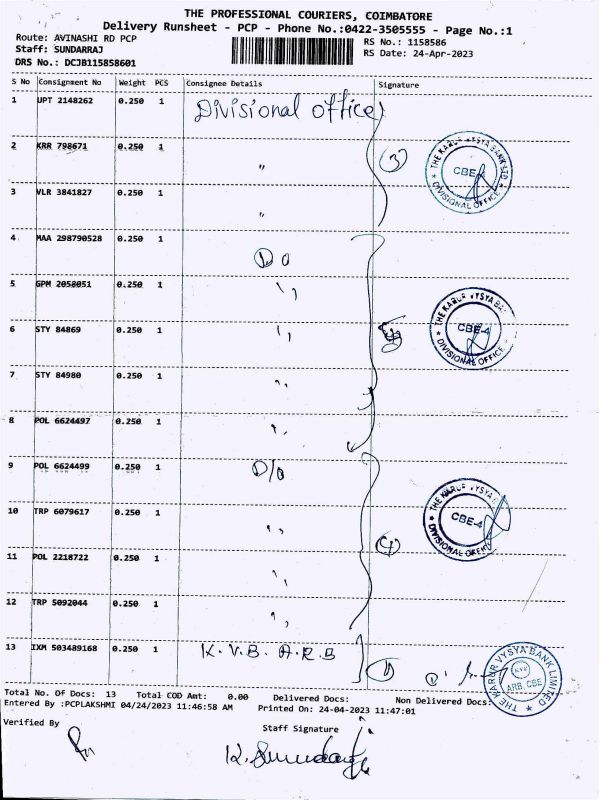 THE PROFESSIONAL COURIERS, COIMBATORE
Delivery Runsheet - PCP - Phone No.:0422-3505555 - Page No.:1
Route: AVINASHI RD PCP
Staff: SUNDARRAJ
DRS No.: DCJB115858601
RS No.: 1158586
RS Date: 24-Apr-2023
S No Consignment No Weight PCS Consignee Details Signature
1 UPT 2148262 0.250 1 Divisional office
2 KRR 798671 0.250 1 "
(3)
THE KARUR VYSYA BANK LTD
CBE-4
DIVISIONAL OFFICE
3 VLR 3841827 0.250 1 "
4 MAA 298790528 0.250 1 D o
5 GPM 2058051 0.250 1 "
6 STY 84869 0.250 1 "
THE KARUR VYSYA BA
CBE-4
DIVISIONAL OFFICE
7 STY 84980 0.250 1 "
8 POL 6624497 0.250 1 "
9 POL 6624499 0.250 1 D/o
10 TRP 6079617 0.250 1 "
(4)
THE KARUR VYSYA
CBE-4
DIVISIONAL OFFICE
11 POL 2218722 0.250 1 "
12 TRP 5092044 0.250 1 "
13 IXM 503489168 0.250 1 K.V.B. A.R.B
(1)
THE KARUR VYSYA BANK LIMITED
KVB
ARB, CBE
Total No. Of Docs: 13 Total COD Amt: 0.00 Delivered Docs: Non Delivered Docs:
Entered By :PCPLAKSHMI 04/24/2023 11:46:58 AM Printed On: 24-04-2023 11:47:01
Verified By
Staff Signature
K. Sundarraj